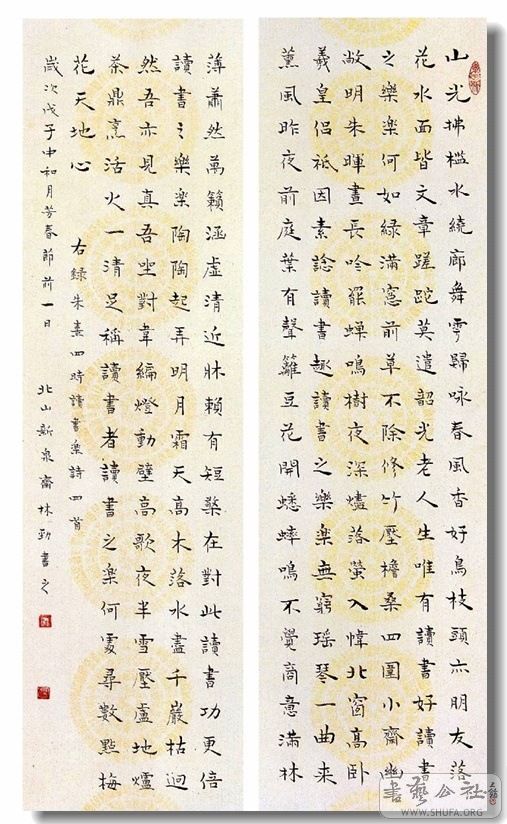 山光拂檻水繞廊舞雩歸咏春風香好鳥枝頭亦朋友落
花水面皆文章蹉跎莫遣韶光老人生唯有讀書好讀書
之樂樂何如綠滿窻前草不除修竹壓檐桑四圍小齋幽
敞明朱暉晝長吟罷蟬鳴樹夜深燼落螢入幃北窗高臥
羲皇侶祗因素諗讀書趣讀書之樂樂無窮瑤琴一曲来
薰風昨夜前庭葉有聲籬豆花開蟋蟀鳴不覺商意滿林
薄蕭然萬籟涵虛清近牀賴有短檠在對此讀書功更倍
讀書之樂樂陶陶起弄明月霜天高木落水盡千巖枯迥
然吾亦見真吾坐對韋編燈動壁高歌夜半雪壓廬地爐
茶鼎烹活火一清足稱讀書者讀書之樂何處尋數點梅
花天地心
右錄朱熹四時讀書樂詩四首
歲次戊子中和月芳春節前一日
北山新泉齋林勁書之
書藝公社
WWW.SHUFA.ORG